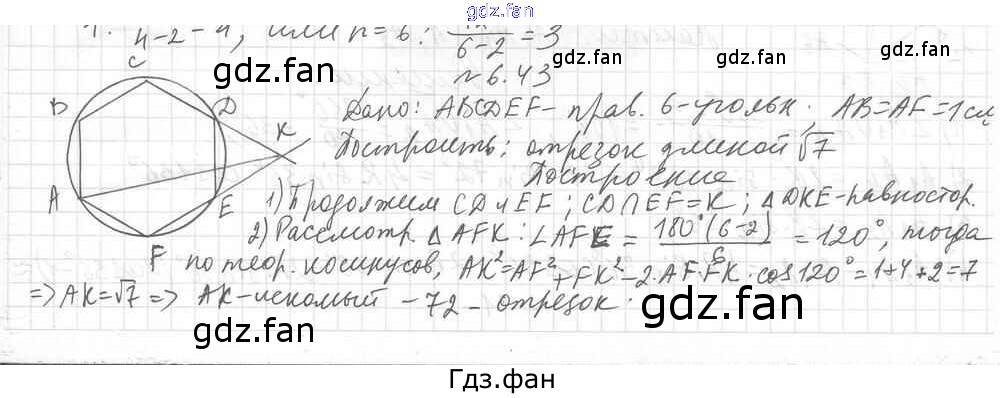 gdz.fan
4-2-4, или n=6: 6-2 = 3
№ 6.43
gdz.fan
gdz.fan
Дано: ABCDEF - прав. 6-угольн. AB=AF=1см
Построить: отрезок длиной √7
Построение
1) Продолжим CD и EF; CD∩EF=K; △DKE-равностор.
2) Рассмотр. △AFK: ∠AFE = 180°(6-2)/6 = 120°, тогда
по теор. косинусов, AK²=AF²+FK²-2·AF·FK·cos120°=1+4+2=7
=> AK=√7 => AK-искомый - 72 - отрезок.
gdz.fan
gdz.fan
C
B
D
K
A
E
F
Гдз.фан